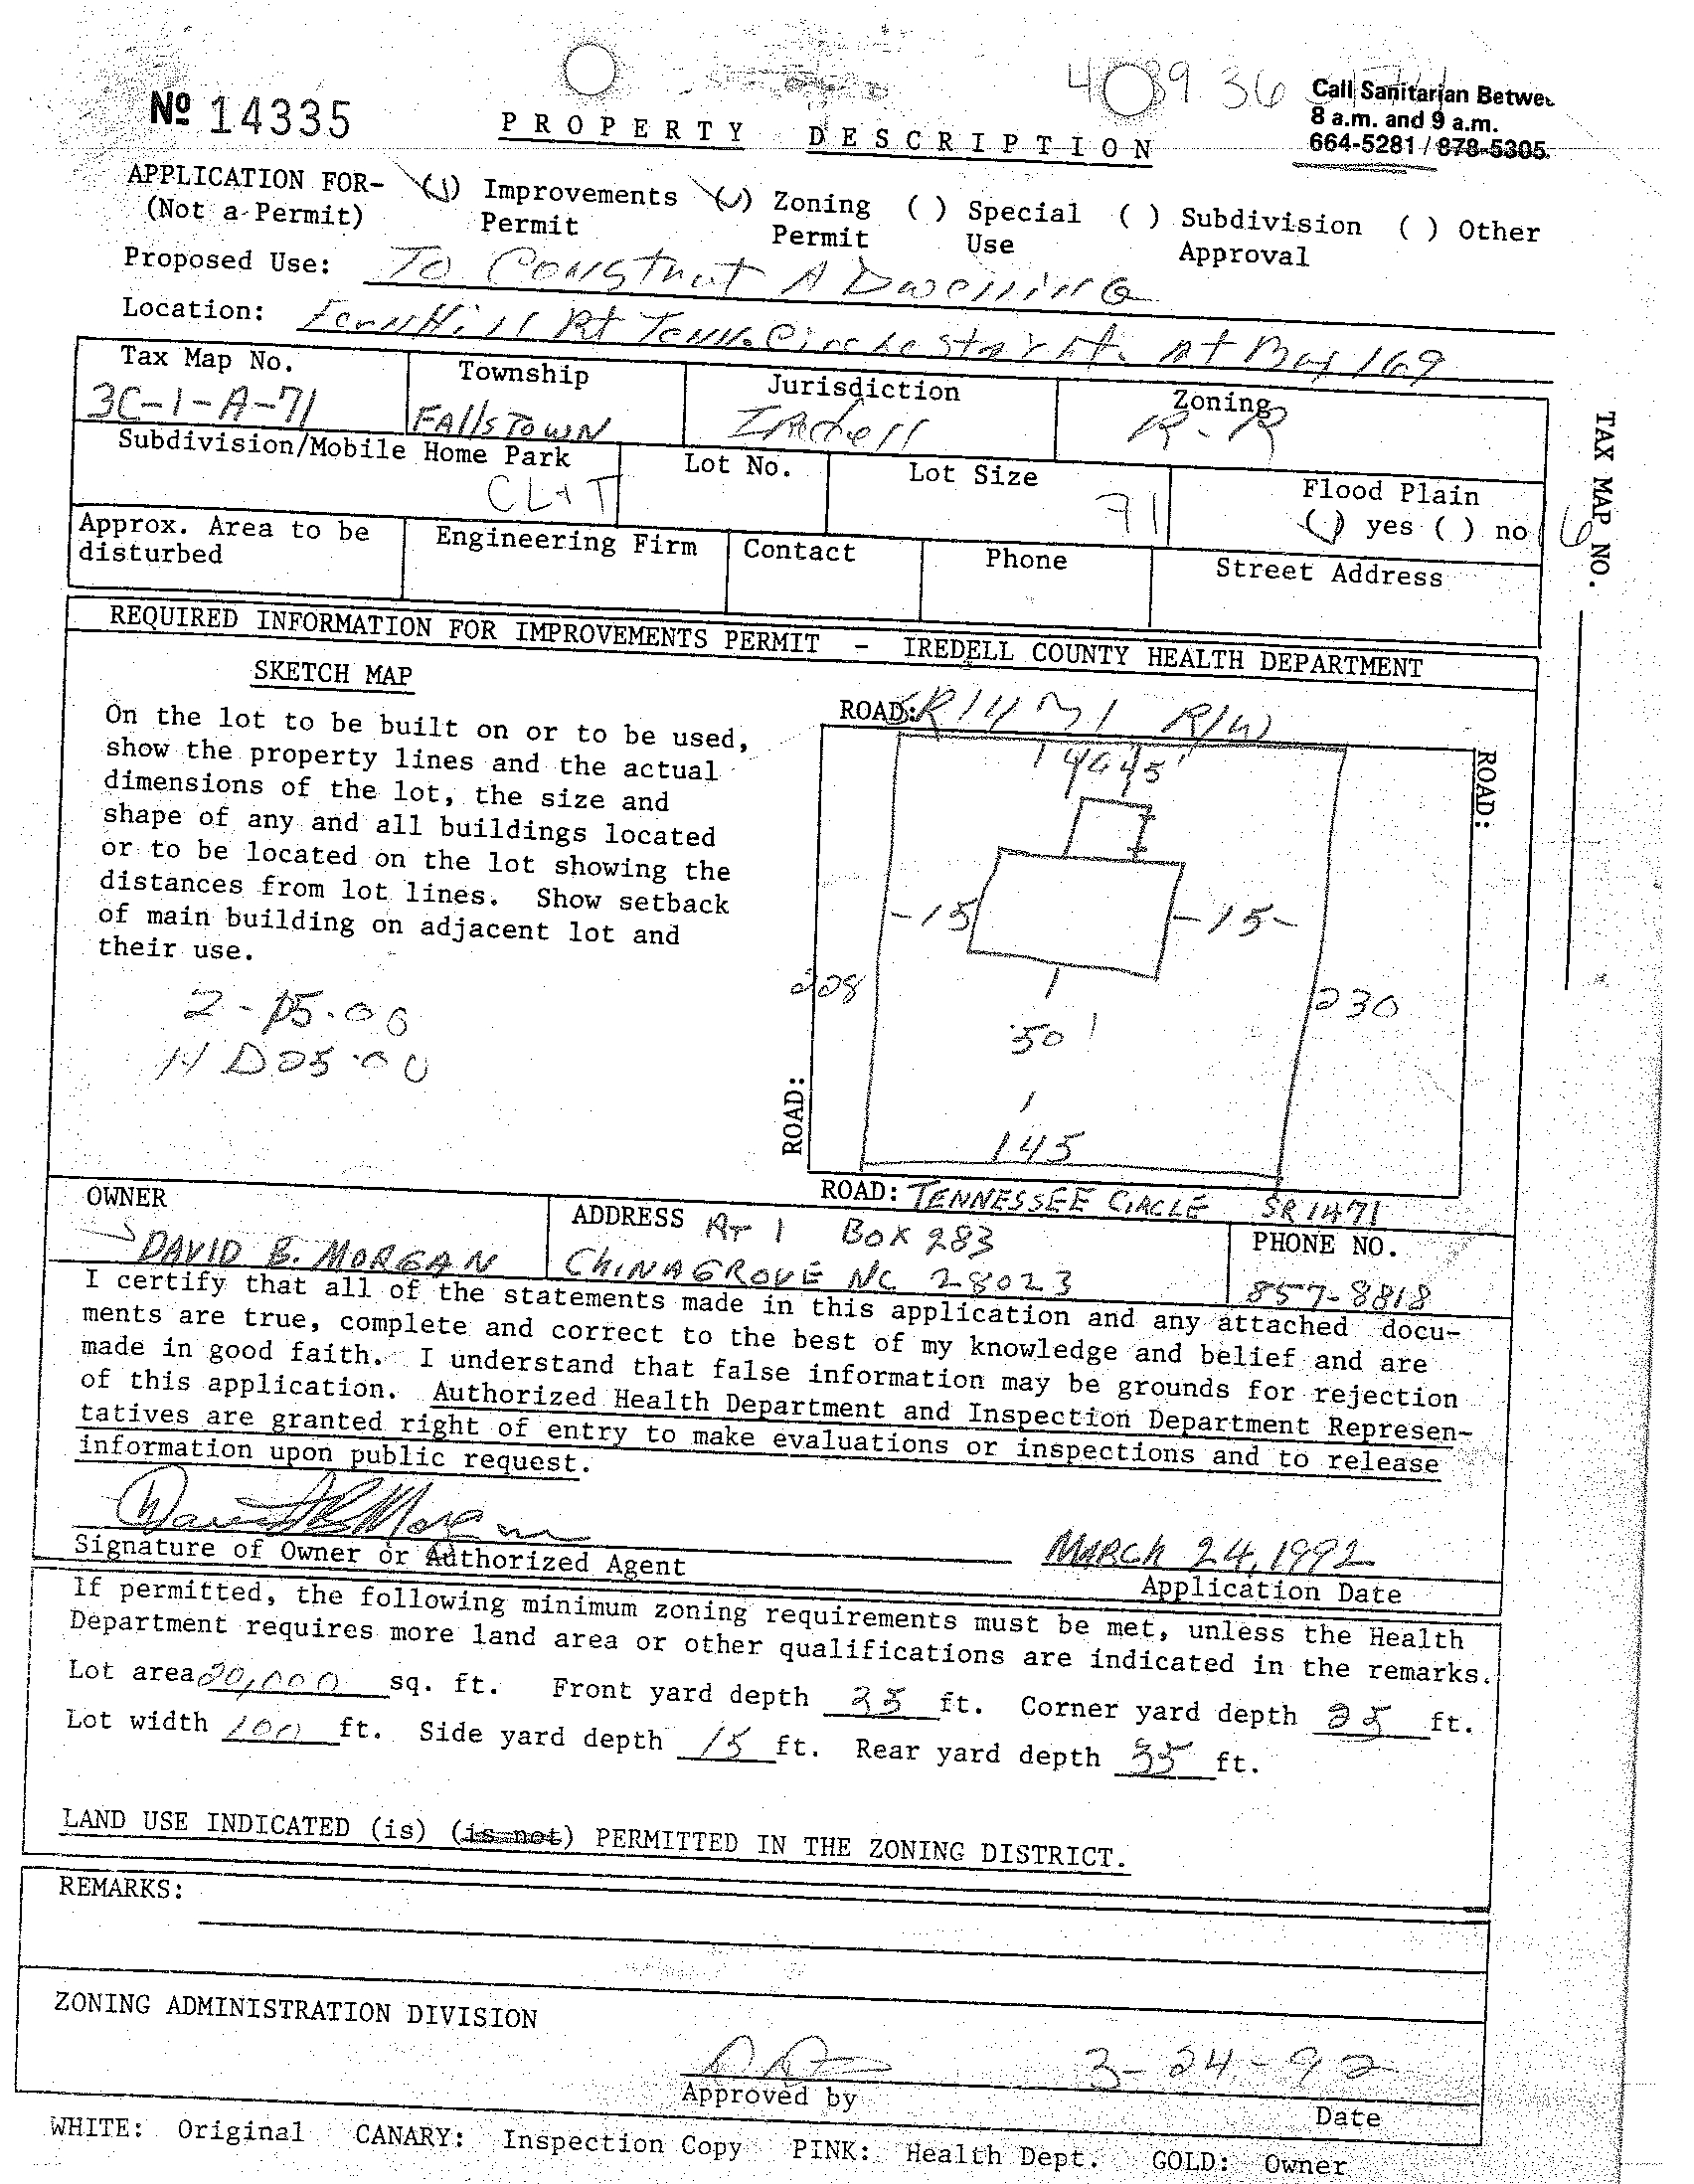 4039 36
Call Sanitarian Betwee
8 a.m. and 9 a.m.
664-5281 / 878-5305.
Nº 14335
PROPERTY DESCRIPTION
APPLICATION FOR- (✓) Improvements (✓) Zoning ( ) Special ( ) Subdivision ( ) Other
(Not a Permit) Permit Permit Use Approval
Proposed Use: To Construt A Dwelling
Location: FernHill Rt Tenn. Circle start. At Bay 169
Tax Map No. Township Jurisdiction Zoning
3C-1-A-71 FAllsTOWN Iredell R-R
Subdivision/Mobile Home Park Lot No. Lot Size Flood Plain
CL+T 71 (✓) yes ( ) no
6
TAX MAP NO.
Approx. Area to be disturbed Engineering Firm Contact Phone Street Address
REQUIRED INFORMATION FOR IMPROVEMENTS PERMIT - IREDELL COUNTY HEALTH DEPARTMENT
SKETCH MAP
On the lot to be built on or to be used,
show the property lines and the actual
dimensions of the lot, the size and
shape of any and all buildings located
or to be located on the lot showing the
distances from lot lines. Show setback
of main building on adjacent lot and
their use.
2-15.00
05.00
ROAD: SR 1471 R/W
ROAD:
145'
-15 -15-
208 230
50'
145
ROAD:
ROAD: TENNESSEE CIRCLE SR 1471
OWNER ADDRESS RT 1 BOX 283 PHONE NO.
DAVID B. MORGAN CHINAGROVE NC 28023 857-8818
I certify that all of the statements made in this application and any attached docu-
ments are true, complete and correct to the best of my knowledge and belief and are
made in good faith. I understand that false information may be grounds for rejection
of this application. Authorized Health Department and Inspection Department Represen-
tatives are granted right of entry to make evaluations or inspections and to release
information upon public request.
David B Morgan MARCH 24, 1992
Signature of Owner or Authorized Agent Application Date
If permitted, the following minimum zoning requirements must be met, unless the Health
Department requires more land area or other qualifications are indicated in the remarks.
Lot area 20,000 sq. ft. Front yard depth 35 ft. Corner yard depth 25 ft.
Lot width 100 ft. Side yard depth 15 ft. Rear yard depth 35 ft.
LAND USE INDICATED (is) (is not) PERMITTED IN THE ZONING DISTRICT.
REMARKS:
ZONING ADMINISTRATION DIVISION
3-24-92
Approved by Date
WHITE: Original CANARY: Inspection Copy PINK: Health Dept. GOLD: Owner